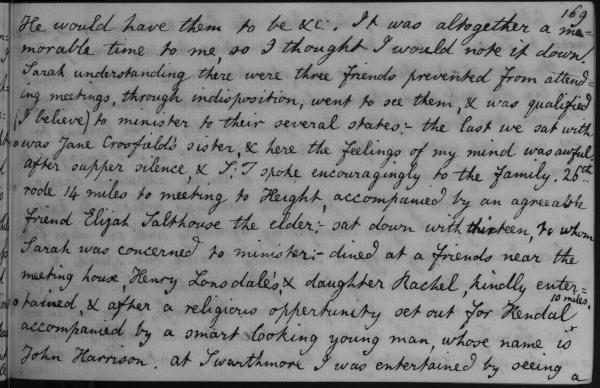 169
He would have them to be &c:. It was altogether a me=
morable time to me, so I thought I would note it down.
Sarah understanding there were three friends prevented from attend=
ing meetings, through indisposition, went to see them, & was qualified
(I believe) to minister to their several states:- the last we sat with
was Jane Crosfield's sister, & here the feelings of my mind was awful
after supper silence, & S:T spoke encouragingly to the family. 26th
rode 14 miles to meeting to Height, accompanied by an agreeable
friend Elijah Salthouse the elder:- sat down with thirteen, to whom
Sarah was concerned to minister:- dined at a friends near the
meeting house, Henry Lonsdale's, & daughter Rachel, kindly enter=
tained, & after a religious oppertunity set out for Kendal 10 miles
accompanied by a smart looking young man, whose name is x
John Harrison. at Swarthmore I was entertained by seeing a